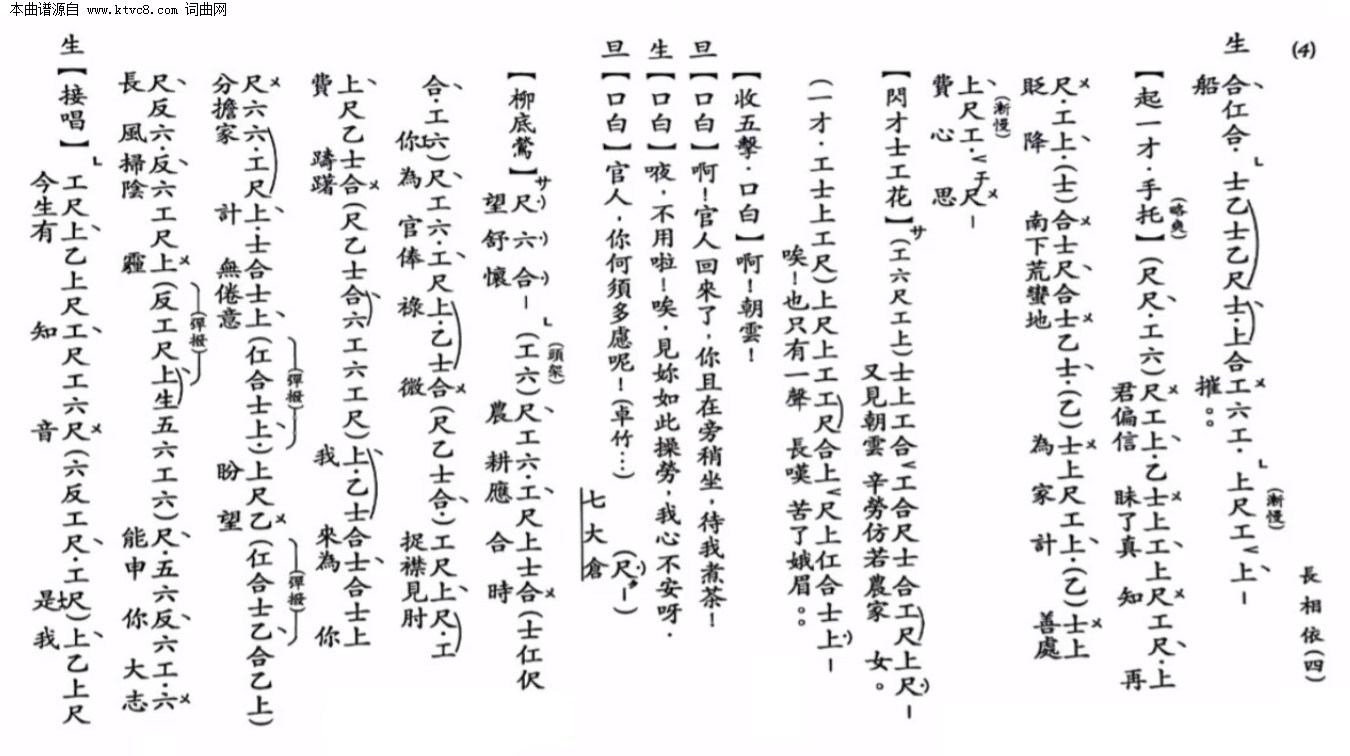 本曲谱源自 www.ktvc8.com 词曲网
(4)
長相依(四)
生 合仜合·士乙士乙尺士·上合工六工·上尺工上–
船 摧。。
(漸慢)
【起一才·手托】(尺尺·工六)尺工上·乙士上工上尺工尺·上
(略爽)
君偏信 昧了真 知 再
尺·工上·(士)合士尺合士乙士·(乙)士上尺工上·(乙)士上
貶 降 南下荒蠻地 為 家 計 善處
上尺工·尺–
(漸慢)
費 心 思
【閃才士工花】(工六尺工上)士上工合工合尺士合工尺上尺–
又見朝雲 辛勞仿若農家 女。
(一才·工士上工尺)上尺上工工尺合上尺上仜合士上–
唉!也只有一聲 長嘆 苦了娥眉。。
【收五擊·口白】啊!朝雲!
旦【口白】啊!官人回來了,你且在旁稍坐,待我煮茶!
生【口白】哦,不用啦!唉,見妳如此操勞,我心不安呀·
旦【口白】官人,你何須多慮呢!(卓竹…)
七大倉
(尺–)
【柳底鶯】尺六合–(工六)尺工六·工尺上士合(士仜伬
(頭架)
望舒懷 農 耕應 合 時
合·工六)尺工六·工尺上·乙士合(尺乙士合·)工尺上尺·工
你為 官俸 祿 微 捉襟見肘
上尺乙士合(尺乙士合六工六工尺)上·乙士合士合士上
費 躊躇 我 來為 你
尺六六·工尺上·士合士上(仜合士上·)上尺乙(仜合士乙合乙上)
(彈撥) (彈撥)
分擔家 計 無倦意 盼 望
尺反六·反六工尺上(反工尺上生五六工六)尺·五六反六工·六
(彈撥)
長 風掃陰 霾 能申 你 大志
生【接唱】工尺上乙上尺工尺工六尺(六反工尺·工尺)上乙上尺
今生有 知 音 是我